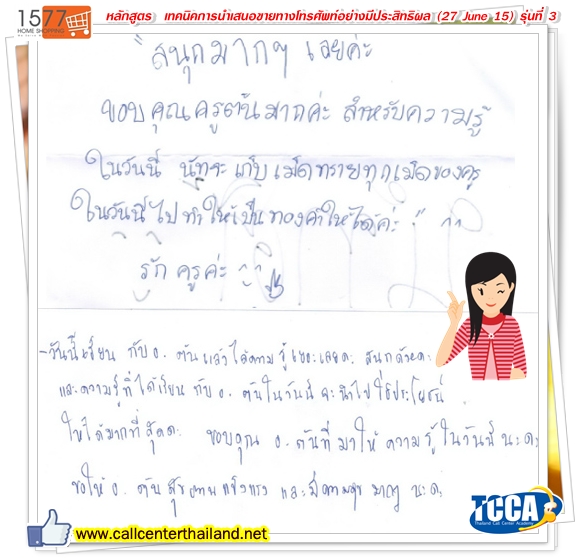 1577
HOME SHOPPING
หลักสูตร เทคนิคการนำเสนอขายทางโทรศัพท์อย่างมีประสิทธิผล (27 June 15) รุ่นที่ 3
"สนุกมากๆ เลยค่ะ
ขอบคุณครูต้นมากค่ะ สำหรับความรู้
ในวันนี้ จะเก็บเม็ดทรายทุกเม็ดของครู
ในวันนี้ไปทำให้เป็นทองคำให้ได้ค่ะ"
รักครูค่ะ
- วันนี้เรียน กับ อ. ต้นแล้วได้ความรู้เยอะเลยค่ะ สนุกด้วยค่ะ
และความรู้ที่ได้เรียน กับ อ. ต้นในวันนี้ จะนำไปใช้ประโยชน์
ให้ได้มากที่สุดค่ะ ขอบคุณ อ. ต้นที่มาให้ความรู้ในวันนี้นะค่ะ
ขอให้ อ. ต้น แข็งแรง และมีความสุข มากๆ นะค่ะ
www.callcenterthailand.net
TCCA
Thailand Call Center Academy